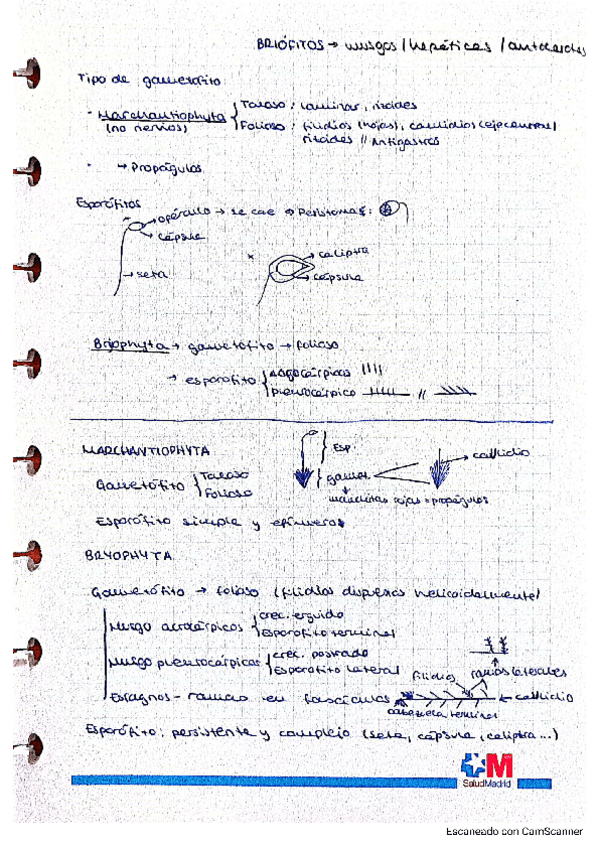 BRIÓFITOS → musgos / hepáticas / antocerotas
Tipo de gametofito:
· Marchantiophyta (no nervios) { Taloso: laminar, rizoides
Folioso: filidios (hojas), caulidios (eje central)
rizoides // Antigastros
· → Propágulos
Esporófitos
opérculo → se cae → Peristomas:
cápsula
seta
* caliptra
cápsula
Bryophyta → gametófito → folioso
→ esporofito { Acrocárpicos
Pleurocárpico //
MARCHANTIOPHYTA
Gametófito { Taloso
Folioso
Esp.
gamet.
caulidio
manchitas rojas = propágulos
Esporófito simple y efímero
BRYOPHYTA
Gametófito → folioso (filidios dispersos helicoidalmente)
Musgo acrocárpicos { crec. erguido
Esporofito terminal
Musgo pleurocárpicos { crec. postrado
Esporofito lateral
filidios
ramas laterales
Esfagnos - ramas en fascículos
caulidio
cabezuela terminal
Esporófito: persistente y complejo (seta, cápsula, caliptra...)
M
SaludMadrid
Escaneado con CamScanner